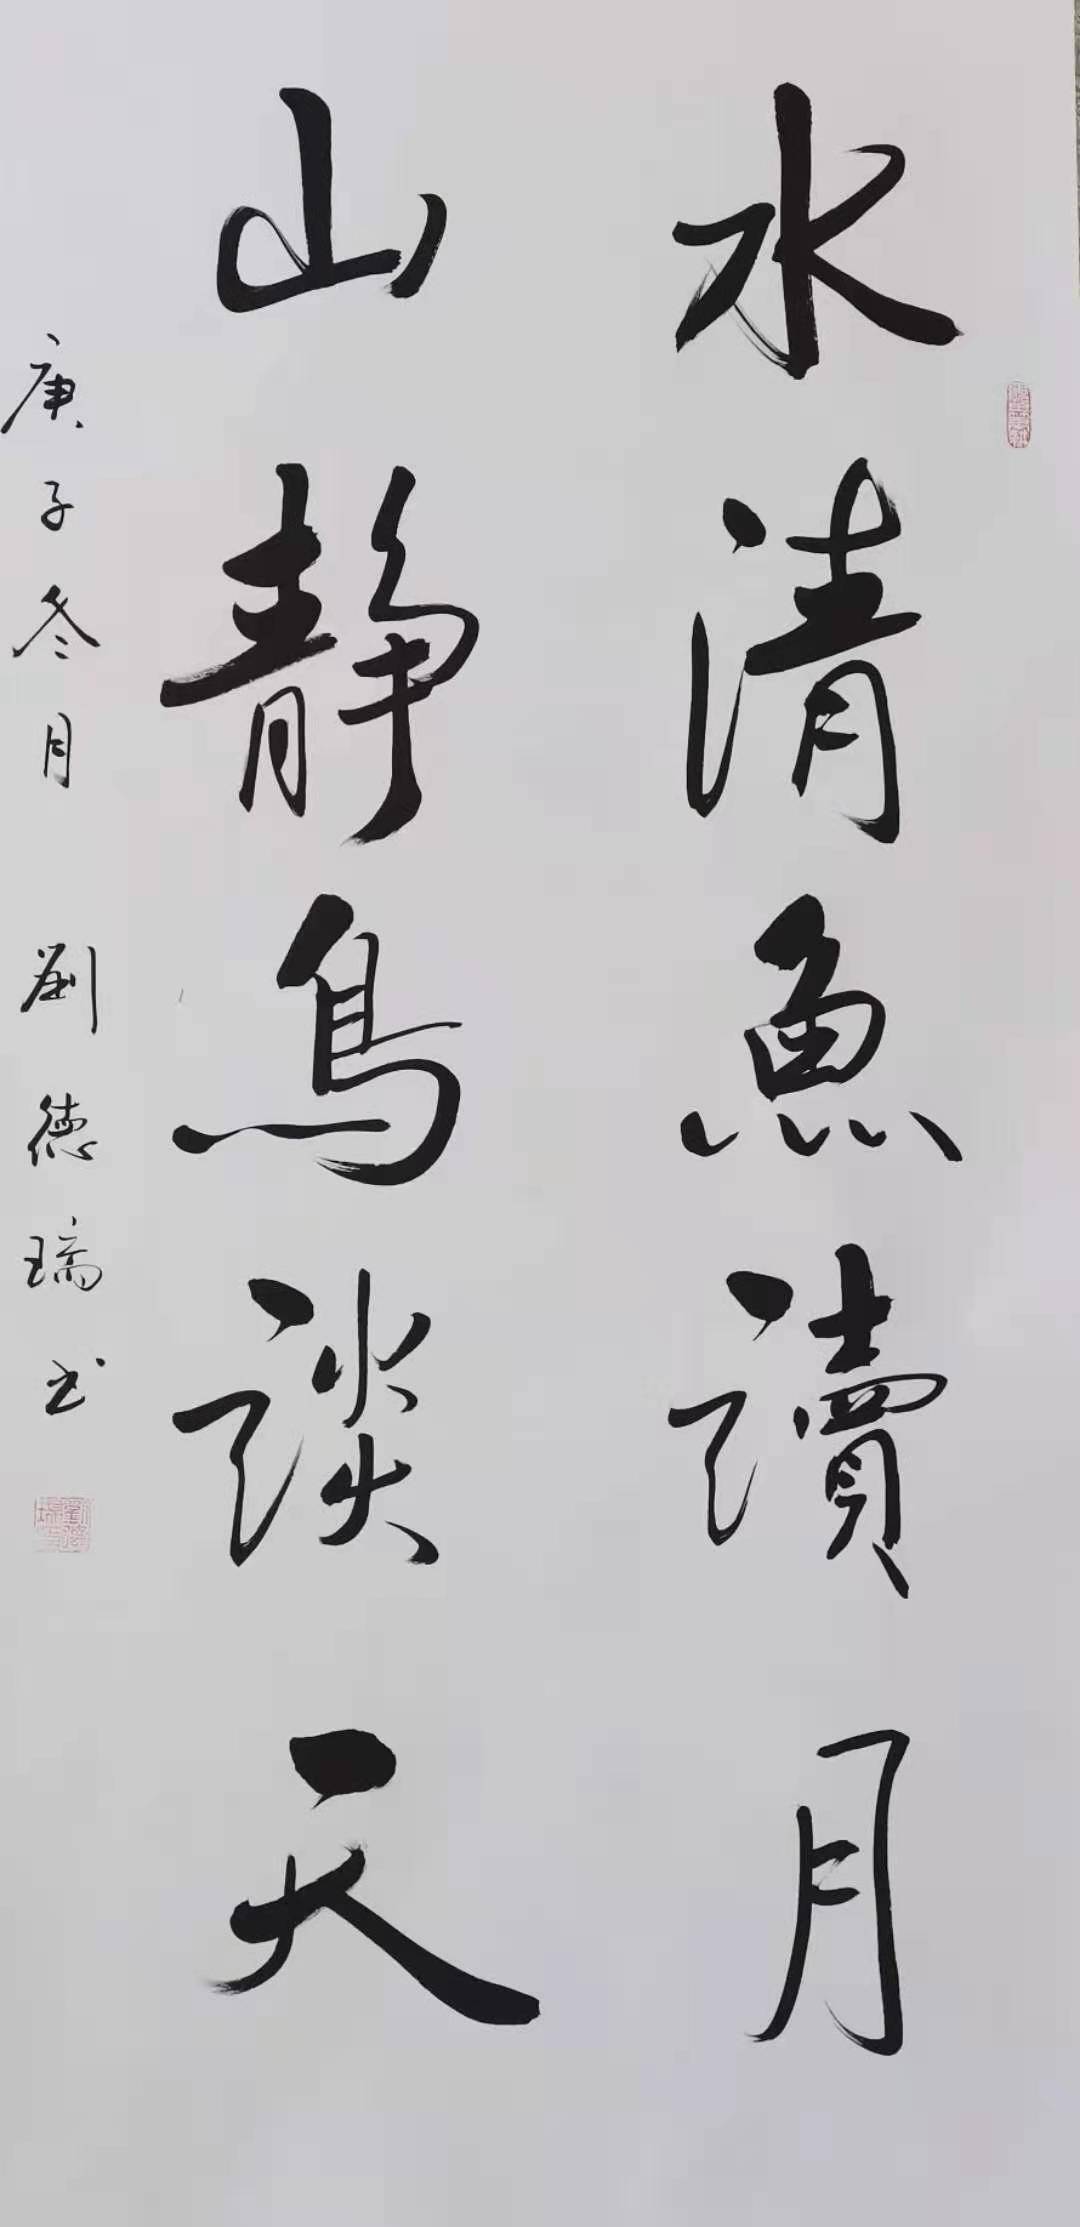 水清魚讀月
山静鳥談天
庚子冬月 劉德瑞书